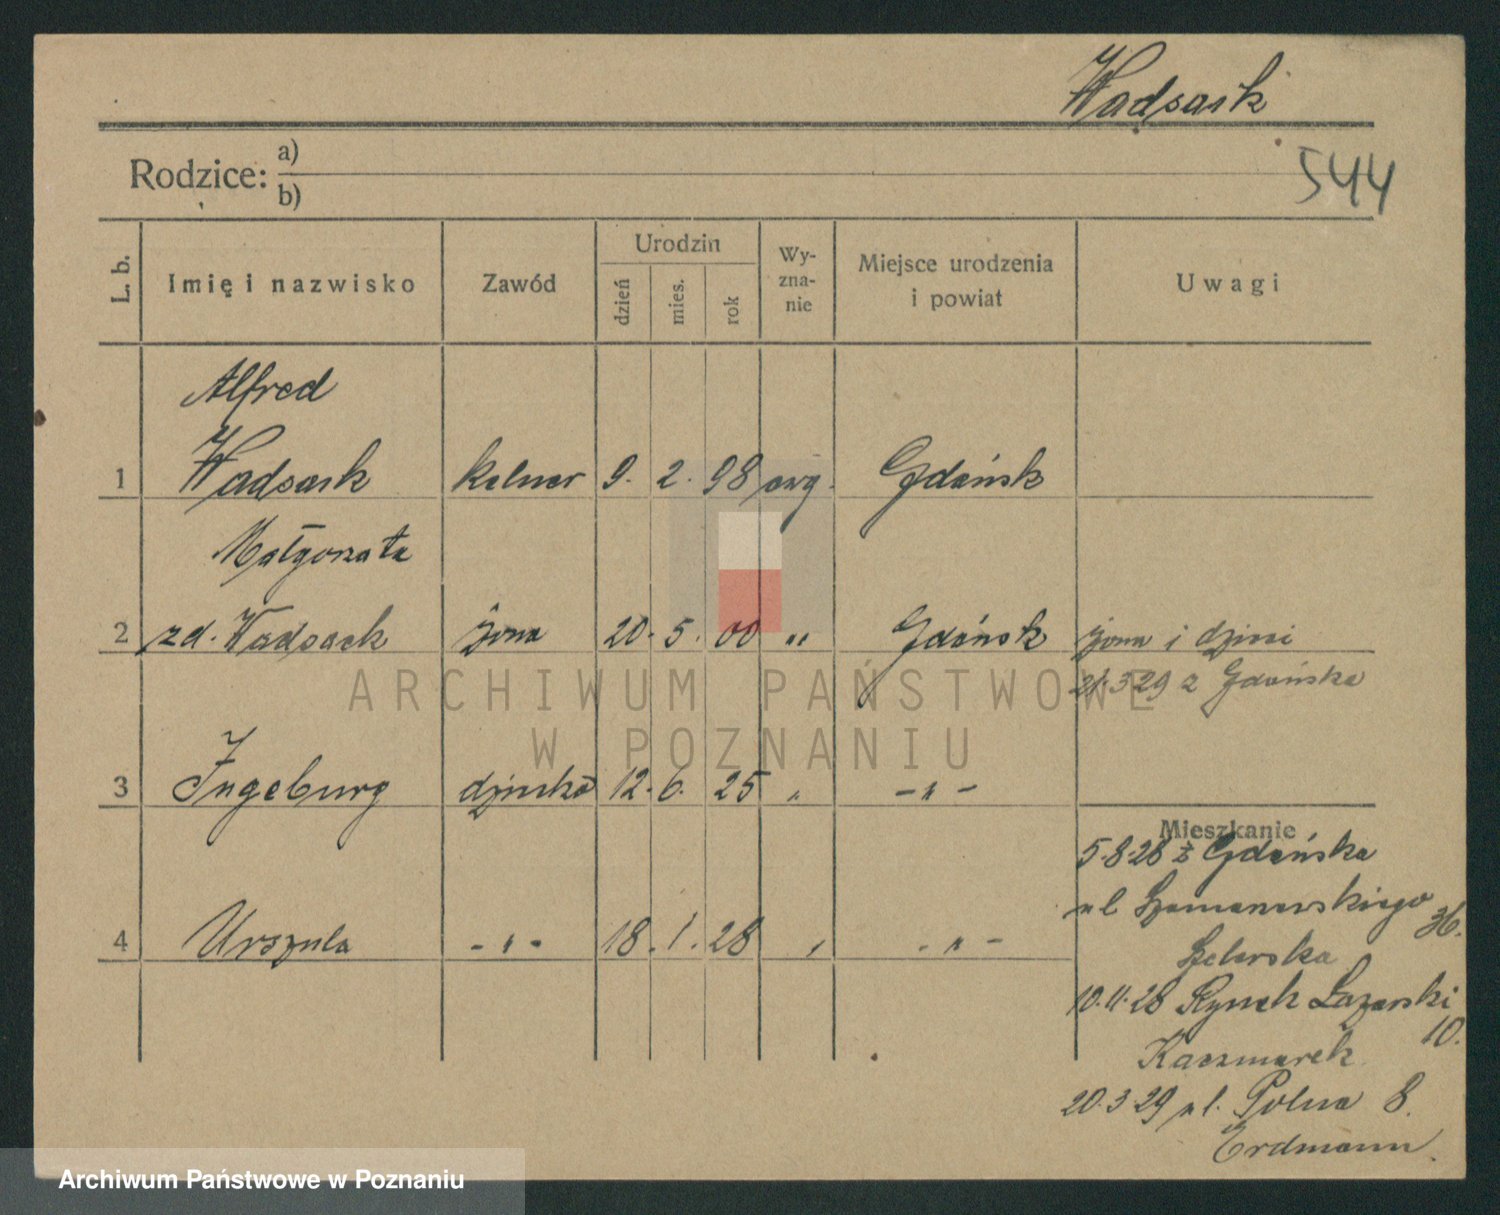 Wadsack
544
Rodzice: a)
b)
L. b. Imię i nazwisko Zawód Urodzin dzień mies. rok Wy-zna-nie Miejsce urodzenia i powiat Uwagi
Alfred
1 Wadsack kelner 9. 2. 98 ewg. Gdańsk
Małgorzata
2 zd. Wadsack żona 20. 5. 00 " Gdańsk żona i dzieci
21.3.29 z Gdańska
ARCHIWUM PAŃSTWOWE
W POZNANIU
3 Ingeburg dziecko 12. 6. 25 " -"-
Mieszkanie
5.8.28 z Gdańska
4 Urszula -"- 18. 1. 28 " -"-
ul Szamarzewskiego 36.
10.11.28 Rynek Łazarski 10.
Kaczmarek
20.3.29 ul. Polna 8.
Erdmann.
Archiwum Państwowe w Poznaniu